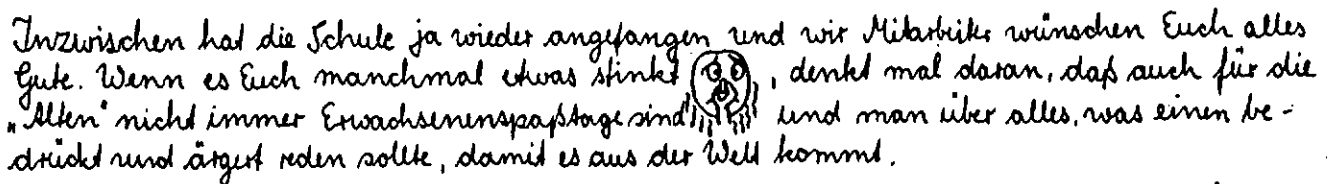 Inzwischen hat die Schule ja wieder angefangen und wir Mitarbeiter wünschen Euch alles
Gute. Wenn es Euch manchmal etwas stinkt , denkt mal daran, daß auch für die
„Alten" nicht immer Erwachsenenspaßtage sind und man über alles, was einen be-
drückt und ärgert reden sollte, damit es aus der Welt kommt.